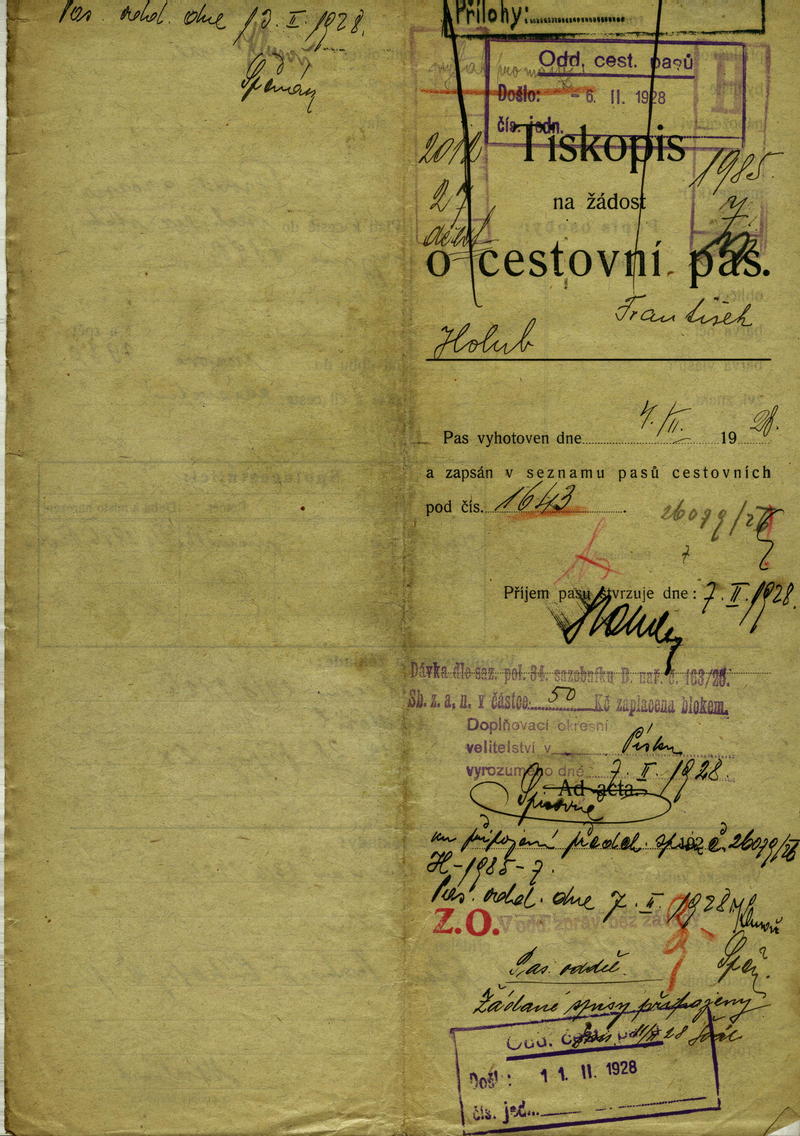 Pas. odd. dne 13. II. 1928.
Přílohy:
Odd. cest. pasů
Došlo: - 6. II. 1928
čís. jedn.
Tiskopis
1985
27
7
na žádost
o cestovní pas.
František
Holub
Pas vyhotoven dne 7./II. 1928.
a zapsán v seznamu pasů cestovních
pod čís. 1643
26099/26
7
Příjem pasu stvrzuje dne: 7. II. 1928.
Dávka dle saz. pol. 34. sazebníku B. nař. č. 163/26.
Sb. z. a. n. v částce 50 Kč zaplacena blokem.
Doplňovací okresní
velitelství v Písku
vyrozuměno dne 7. II. 1928.
Ad acta.
Správně
ku připojení předch. spisů č. 26099/26
H-1985-7.
Pas. odd. dne 7. II. 1928
Z.O. V odd. zpráv. bez
Pas. odděl.
Žádané spisy připojeny
11/II 28
Odd. cest. pasů
Došlo: 11. II. 1928
čís. jed.